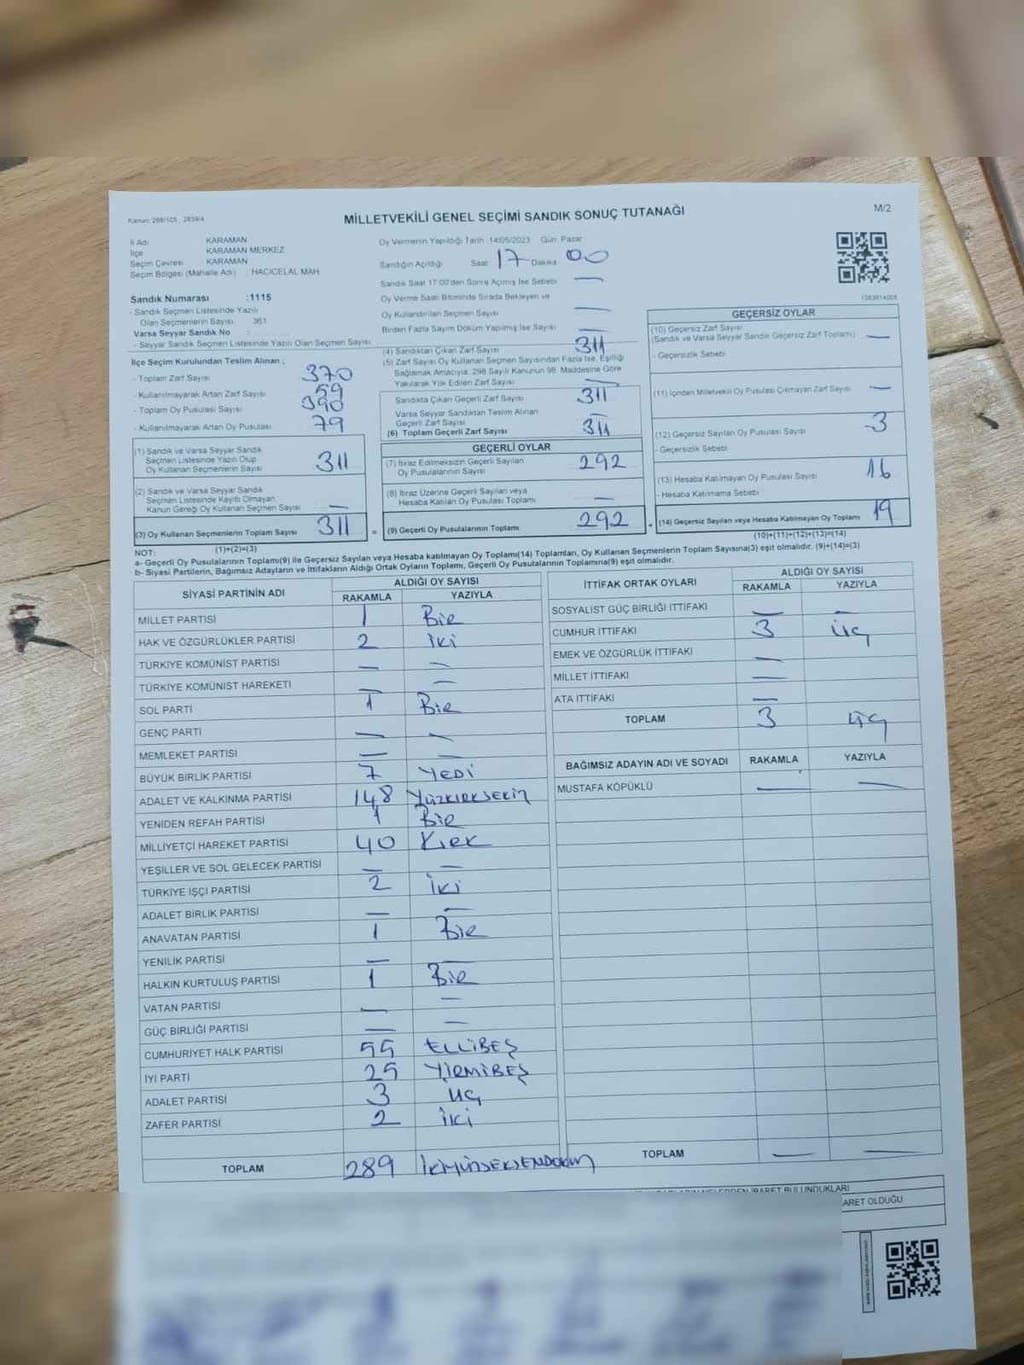 Kanun: 298/105 ; 2839/4
MİLLETVEKİLİ GENEL SEÇİMİ SANDIK SONUÇ TUTANAĞI
M/2
İl Adı KARAMAN
İlçe KARAMAN MERKEZ
Seçim Çevresi KARAMAN
Seçim Bölgesi (Mahalle Adı) : HACICELAL MAH.
Oy Vermenin Yapıldığı Tarih :14/05/2023 Gün: Pazar
Sandığın Açıldığı Saat 17 Dakika 00
Sandık Saat 17:00'den Sonra Açılmış İse Sebebi —
Oy Verme Saati Bitiminde Sırada Bekleyen ve
Oy Kullandırılan Seçmen Sayısı —
Birden Fazla Sayım Döküm Yapılmış İse Sayısı —
Sandık Numarası :1115
- Sandık Seçmen Listesinde Yazılı
Olan Seçmenlerin Sayısı : 361
Varsa Seyyar Sandık No :
- Seyyar Sandık Seçmen Listesinde Yazılı Olan Seçmen Sayısı:
İlçe Seçim Kurulundan Teslim Alınan ;
- Toplam Zarf Sayısı 370
- Kullanılmayarak Artan Zarf Sayısı 59
- Toplam Oy Pusulası Sayısı 390
- Kullanılmayarak Artan Oy Pusulası 79
(1) Sandık ve Varsa Seyyar Sandık
Seçmen Listesinde Yazılı Olup
Oy Kullanan Seçmenlerin Sayısı 311
(2) Sandık ve Varsa Seyyar Sandık
Seçmen Listesinde Kayıtlı Olmayan
Kanun Gereği Oy Kullanan Seçmen Sayısı —
(3) Oy Kullanan Seçmenlerin Toplam Sayısı 311
(1)+(2)=(3)
(4) Sandıktan Çıkan Zarf Sayısı 311
(5) Zarf Sayısı Oy Kullanan Seçmen Sayısından Fazla İse, Eşitliği
Sağlamak Amacıyla, 298 Sayılı Kanunun 98. Maddesine Göre
Yakılarak Yok Edilen Zarf Sayısı —
Sandıkta Çıkan Geçerli Zarf Sayısı 311
Varsa Seyyar Sandıktan Teslim Alınan
Geçerli Zarf Sayısı —
(6) Toplam Geçerli Zarf Sayısı 311
GEÇERLİ OYLAR
(7) İtiraz Edilmeksizin Geçerli Sayılan
Oy Pusulalarının Sayısı 292
(8) İtiraz Üzerine Geçerli Sayılan veya
Hesaba Katılan Oy Pusulası Toplamı —
= (9) Geçerli Oy Pusulalarının Toplamı 292
GEÇERSİZ OYLAR
(10) Geçersiz Zarf Sayısı
(Sandık ve Varsa Seyyar Sandık Geçersiz Zarf Toplamı) —
- Geçersizlik Sebebi
(11) İçinden Milletvekili Oy Pusulası Çıkmayan Zarf Sayısı —
(12) Geçersiz Sayılan Oy Pusulası Sayısı 3
- Geçersizlik Sebebi
(13) Hesaba Katılmayan Oy Pusulası Sayısı 16
- Hesaba Katılmama Sebebi
+ (14) Geçersiz Sayılan veya Hesaba Katılmayan Oy Toplamı 19
(10)+(11)+(12)+(13)=(14)
NOT:
a- Geçerli Oy Pusulalarının Toplamı(9) ile Geçersiz Sayılan veya Hesaba katılmayan Oy Toplamı(14) Toplamları, Oy Kullanan Seçmenlerin Toplam Sayısına(3) eşit olmalıdır. (9)+(14)=(3)
b- Siyasi Partilerin, Bağımsız Adayların ve İttifakların Aldığı Ortak Oyların Toplamı, Geçerli Oy Pusulalarının Toplamına(9) eşit olmalıdır.
SİYASİ PARTİNİN ADI ALDIĞI OY SAYISI
RAKAMLA YAZIYLA
MİLLET PARTİSİ 1 Bir
HAK VE ÖZGÜRLÜKLER PARTİSİ 2 iki
TÜRKİYE KOMÜNİST PARTİSİ — —
TÜRKİYE KOMÜNİST HAREKETİ — —
SOL PARTİ 1 Bir
GENÇ PARTİ — —
MEMLEKET PARTİSİ — —
BÜYÜK BİRLİK PARTİSİ 7 YEDİ
ADALET VE KALKINMA PARTİSİ 148 Yüzkırksekiz
YENİDEN REFAH PARTİSİ 1 Bir
MİLLİYETÇİ HAREKET PARTİSİ 40 Kırk
YEŞİLLER VE SOL GELECEK PARTİSİ — —
TÜRKİYE İŞÇİ PARTİSİ 2 iki
ADALET BİRLİK PARTİSİ — —
ANAVATAN PARTİSİ 1 Bir
YENİLİK PARTİSİ — —
HALKIN KURTULUŞ PARTİSİ 1 Bir
VATAN PARTİSİ — —
GÜÇ BİRLİĞİ PARTİSİ — —
CUMHURİYET HALK PARTİSİ 55 ELLİBEŞ
İYİ PARTİ 25 YİRMİBEŞ
ADALET PARTİSİ 3 üç
ZAFER PARTİSİ 2 iki
TOPLAM 289
İTTİFAK ORTAK OYLARI ALDIĞI OY SAYISI
RAKAMLA YAZIYLA
SOSYALİST GÜÇ BİRLİĞİ İTTİFAKI — —
CUMHUR İTTİFAKI 3 üç
EMEK VE ÖZGÜRLÜK İTTİFAKI —
MİLLET İTTİFAKI —
ATA İTTİFAKI —
TOPLAM 3 üç
BAĞIMSIZ ADAYIN ADI VE SOYADI RAKAMLA YAZIYLA
MUSTAFA KÖPÜKLÜ — —
TOPLAM — —
ARET OLDUĞU